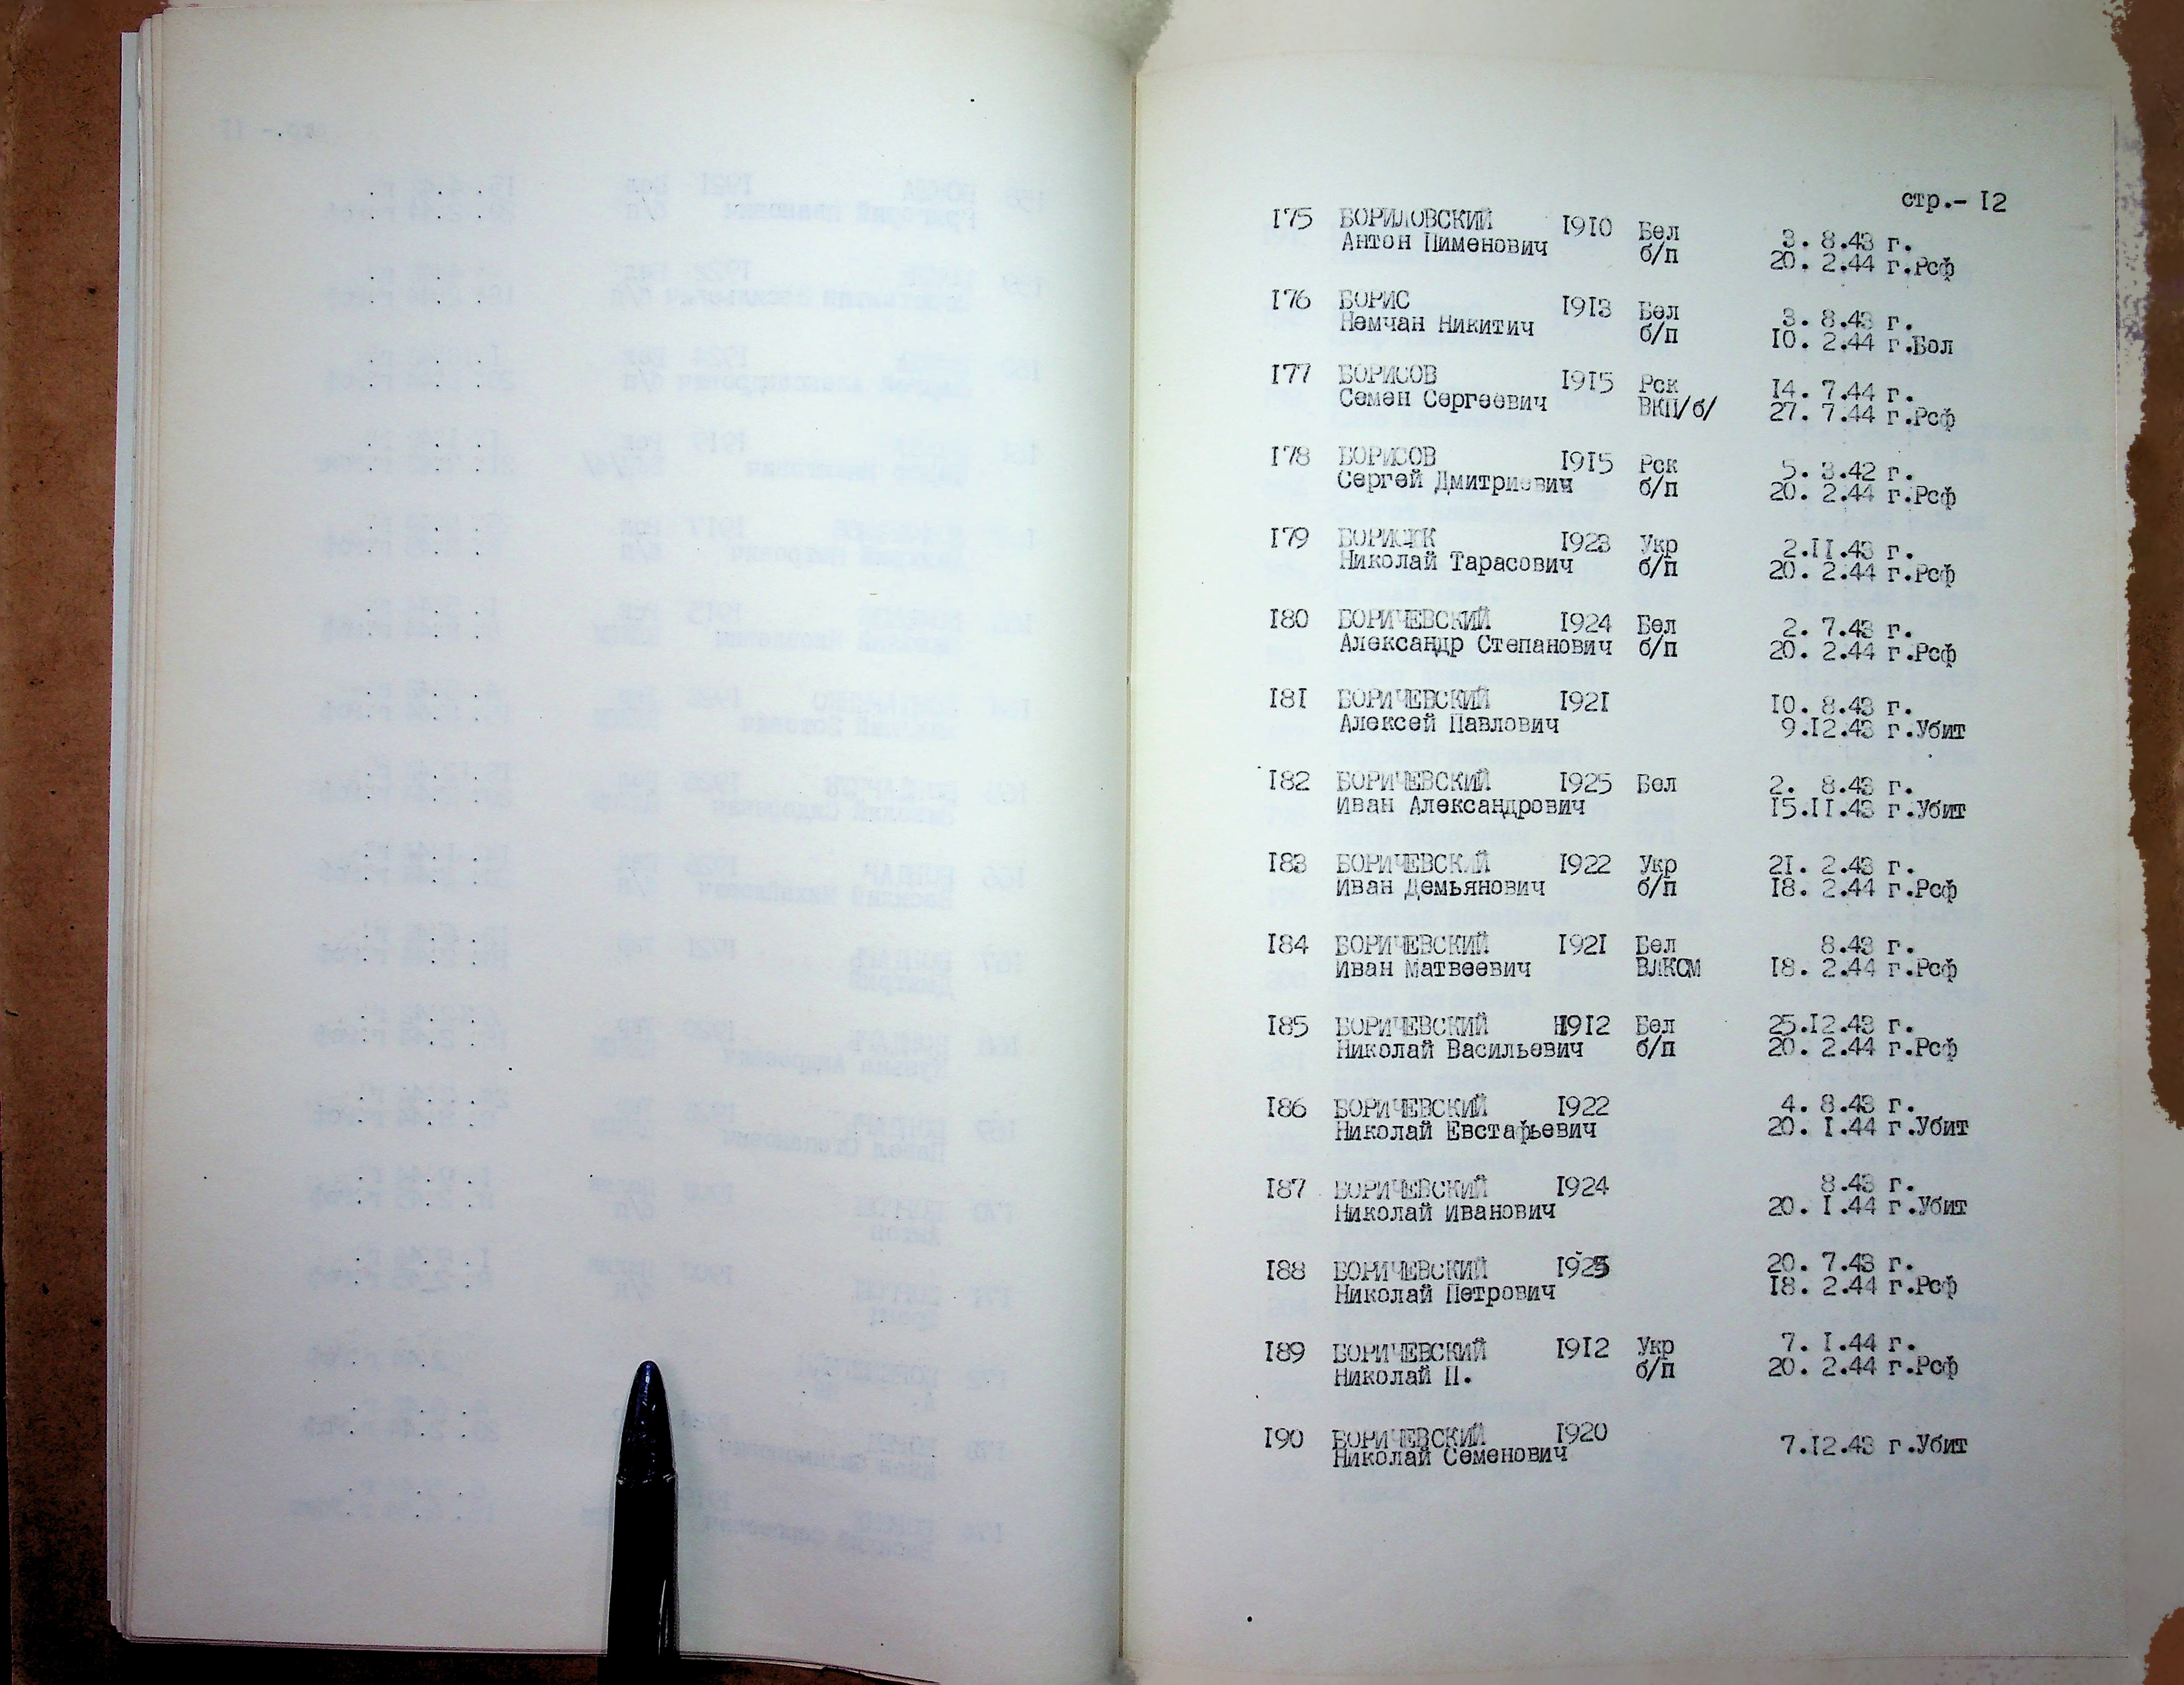 стр.- I2
I75 БОРИЛОВСКИЙ I9I0 Бел 3. 8.43 г.
Антон Пименович б/п 20. 2.44 г.Рсф
I76 БОРИС I9I3 Бел 3. 8.43 г.
Немчан Никитич б/п I0. 2.44 г.Бол
I77 БОРИСОВ I9I5 Рск I4. 7.44 г.
Семен Сергеевич ВКП/б/ 27. 7.44 г.Рсф
I78 БОРИСОВ I9I5 Рск 5. 3.42 г.
Сергей Дмитриевич б/п 20. 2.44 г.Рсф
I79 БОРИСЮК I923 Укр 2.II.43 г.
Николай Тарасович б/п 20. 2.44 г.Рсф
I80 БОРИЧЕВСКИЙ I924 Бел 2. 7.43 г.
Александр Степанович б/п 20. 2.44 г.Рсф
I8I БОРИЧЕВСКИЙ I92I I0. 8.43 г.
Алексей Павлович 9.I2.43 г.Убит
I82 БОРИЧЕВСКИЙ I925 Бел 2. 8.43 г.
Иван Александрович I5.II.43 г.Убит
I83 БОРИЧЕВСКИЙ I922 Укр 2I. 2.43 г.
Иван Демьянович б/п I8. 2.44 г.Рсф
I84 БОРИЧЕВСКИЙ I92I Бел 8.43 г.
Иван Матвеевич ВЛКСМ I8. 2.44 г.Рсф
I85 БОРИЧЕВСКИЙ I9I2 Бел 25.I2.43 г.
Николай Васильевич б/п 20. 2.44 г.Рсф
I86 БОРИЧЕВСКИЙ I922 4. 8.43 г.
Николай Евстафьевич 20. I.44 г.Убит
I87 БОРИЧЕВСКИЙ I924 8.43 г.
Николай Иванович 20. I.44 г.Убит
I88 БОРИЧЕВСКИЙ I925 20. 7.43 г.
Николай Петрович I8. 2.44 г.Рсф
I89 БОРИЧЕВСКИЙ I9I2 Укр 7. I.44 г.
Николай П. б/п 20. 2.44 г.Рсф
I90 БОРИЧЕВСКИЙ I920 7.I2.43 г.Убит
Николай Семенович